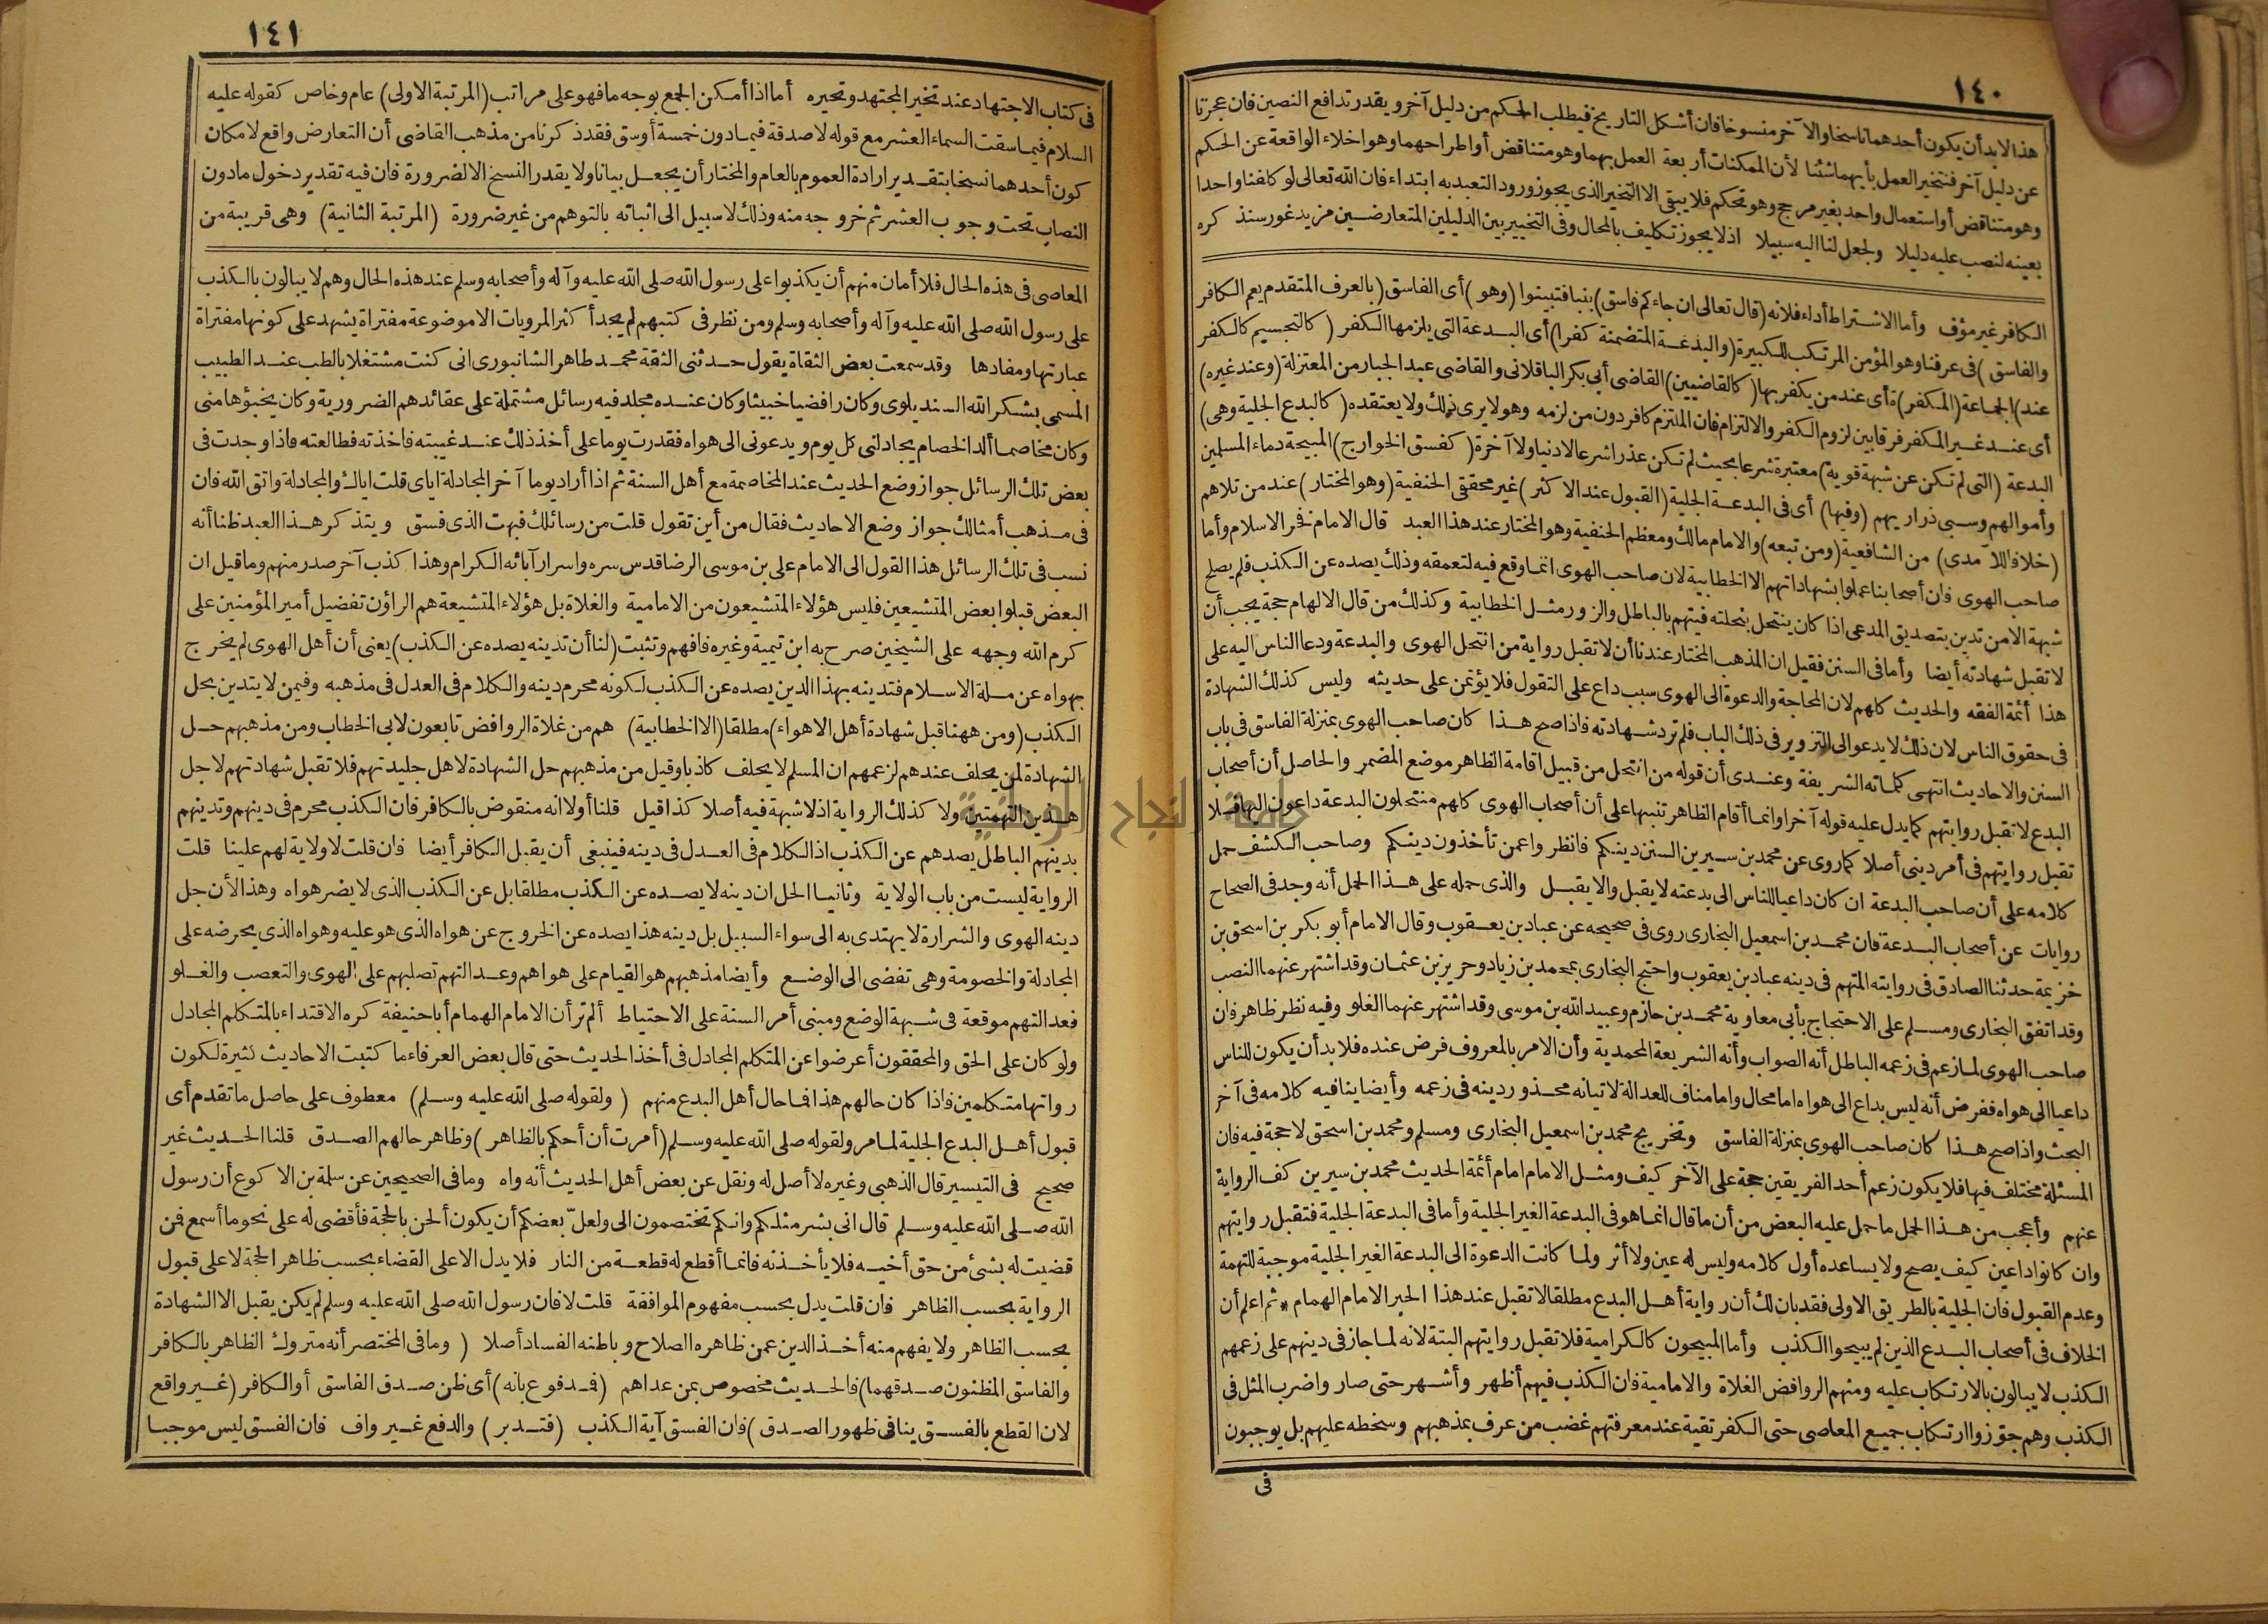 ١٤٠
هذا لا بد أن يكون أحدهما ناسخا والآخر منسوخا فان أشكل التاريخ فيطلب الحكم من دليل آخر ويقدر تدافع النصين فان عجزنا
عن دليل آخر فنتخير العمل بأيهما شئنا لأن الممكنات أربعة العمل بهما وهو متناقض أو اطراحهما وهو اخلاء الواقعة عن الحكم
وهو متناقض أو استعمال واحد بغير مرجح وهو تحكم فلا يبقى الا التخير الذي يجوز ورود التعبد به ابتداء فان الله تعالى لو كلفنا واحدا
بعينه لنصب عليه دليلا ولجعل لنا اليه سبيلا اذ لا يجوز تكليف بالمحال وفى التخيير بين الدليلين المتعارضين مزيد غور سنذكره
الكافر غير مؤف وأما الاشتراط أداء فلانه (قال تعالى ان جاءكم فاسق) بنبا فتبينوا (وهو) أى الفاسق (بالعرف المتقدم يعم الكافر
والفاسق) فى عرفنا وهو المؤمن المرتكب للكبيرة (والبدعة المتضمنة كفرا) أى البدعة التى يلزمها الكفر (كالتجسيم كالكفر
عند) الجماعة (المكفر)ة أى عند من يكفر بها (كالقاضيين) القاضى أبى بكر الباقلانى والقاضى عبد الجبار من المعتزلة (وعند غيره)
أى عند غير المكفر فرقا بين لزوم الكفر والالتزام فان الملتزم كافر دون من لزمه وهو لا يرى ذلك ولا يعتقده (كالبدع الجلية وهى)
البدعة (التى لم تكن عن شبهة قوية) معتبرة شرعا بحيث لم تكن عذرا شرعا لا دنيا ولا آخرة (كفسق الخوارج) المبيحة دماء المسلمين
وأموالهم وسبى ذراريهم (وفيها) أى فى البدعة الجلية (القبول عند الاكثر) غير محققى الحنفية (وهو المختار) عند من تلاهم
(خلافا للآمدى) من الشافعية (ومن تبعه) والامام مالك ومعظم الحنفية وهو المختار عند هذا العبد قال الامام فخر الاسلام وأما
صاحب الهوى فان أصحابنا عملوا بشهاداتهم الا الخطابية لان صاحب الهوى انما وقع فيه لتعمقه وذلك يصده عن الكذب فلم يصلح
شبهة الا من تدين بتصديق المدعى اذا كان ينتحل بنحلته فيتهم بالباطل والزور مثل الخطابية وكذلك من قال الالهام حجة يجب أن
لا تقبل شهادته أيضا وأما فى السنن فقيل ان المذهب المختار عندنا أن لا تقبل رواية من انتحل الهوى والبدعة ودعا الناس اليه على
هذا أئمة الفقه والحديث كلهم لان المحاجة والدعوة الى الهوى سبب داع على التقول فلا يؤتمن على حديثه وليس كذلك الشهادة
فى حقوق الناس لان ذلك لا يدعو الى التزوير فى ذلك الباب فلم ترد شهادته فاذا صح هذا كان صاحب الهوى بمنزلة الفاسق فى باب
السنن والاحاديث انتهى كلماته الشريفة وعندى أن قوله من انتحل من قبيل اقامة الظاهر موضع المضمر والحاصل أن أصحاب
البدع لا تقبل روايتهم كما يدل عليه قوله آخرا وانما أقام الظاهر تنبيها على أن أصحاب الهوى كلهم منتحلون البدعة داعون اليها فلا
تقبل روايتهم فى أمر دينى أصلا كما روى عن محمد بن سيرين السنن دينكم فانظروا عمن تأخذون دينكم وصاحب الكشف حمل
كلامه على أن صاحب البدعة ان كان داعيا للناس الى بدعته لا يقبل والا يقبل والذى حمله على هذا الحمل أنه وجد فى الصحاح
روايات عن أصحاب البدعة فان محمد بن اسمعيل البخارى روى فى صحيحه عن عباد بن يعقوب وقال الامام أبو بكر بن اسحق بن
خزيمة حدثنا الصادق فى روايته المتهم فى دينه عباد بن يعقوب واحتج البخارى بمحمد بن زياد وحريز بن عثمان وقد اشتهر عنهما النصب
وقد اتفق البخارى ومسلم على الاحتجاج بأبى معاوية محمد بن حازم وعبيد الله بن موسى وقد اشتهر عنهما الغلو وفيه نظر ظاهر فان
صاحب الهوى لما زعم فى زعمه الباطل أنه الصواب وأنه الشريعة المحمدية وأن الامر بالمعروف فرض عنده فلا بد أن يكون للناس
داعيا الى هواه ففرض أنه ليس بداع الى هواه اما محال واما مناف للعدالة لاتيانه محذور دينه فى زعمه وأيضا ينافيه كلامه فى آخر
البحث واذا صح هذا كان صاحب الهوى بمنزلة الفاسق وتخريج محمد بن اسمعيل البخارى ومسلم ومحمد بن اسحق لا حجة فيه فان
المسئلة مختلف فيها فلا يكون زعم أحد الفريقين حجة على الآخر كيف ومثل الامام امام أئمة الحديث محمد بن سيرين كف الرواية
عنهم وأعجب من هذا الحمل ما حمل عليه البعض من أن ما قال انما هو فى البدعة الغير الجلية وأما فى البدعة الجلية فتقبل روايتهم
وان كانوا داعين كيف يصح ولا يساعده أول كلامه وليس له عين ولا أثر ولما كانت الدعوة الى البدعة الغير الجلية موجبة للتهمة
وعدم القبول فان الجلية بالطريق الاولى فقد بان لك أن رواية أهل البدع مطلقا لا تقبل عند هذا الحبر الامام الهمام * ثم اعلم أن
الخلاف فى أصحاب البدع الذين لم يبيحوا الكذب وأما المبيحون كالكرامية فلا تقبل روايتهم البتة لانه لما جاز فى دينهم على زعمهم
الكذب لا يبالون بالارتكاب عليه ومنهم الروافض الغلاة والامامية فان الكذب فيهم أظهر وأشهر حتى صار واضرب المثل فى
الكذب وهم جوّزوا ارتكاب جميع المعاصى حتى الكفر تقية عند معرفتهم غضب من عرف بمذهبهم وسخطه عليهم بل يوجبون
فى
١٤١
فى كتاب الاجتهاد عند تخير المجتهد وتحيره أما اذا أمكن الجمع بوجه ما فهو على مراتب (المرتبة الاولى) عام وخاص كقوله عليه
السلام فيما سقت السماء العشر مع قوله لا صدقة فيما دون خمسة أوسق فقد ذكرنا من مذهب القاضى أن التعارض واقع لامكان
كون أحدهما نسخا بتقدير ارادة العموم بالعام والمختار أن يجعل بيانا ولا يقدر النسخ الا لضرورة فان فيه تقدير دخول ما دون
النصاب تحت وجوب العشر ثم خروجه منه وذلك لا سبيل الى اثباته بالتوهم من غير ضرورة (المرتبة الثانية) وهى قريبة من
المعاصى فى هذه الحال فلا أمان منهم أن يكذبوا على رسول الله صلى الله عليه وآله وأصحابه وسلم عند هذه الحال وهم لا يبالون بالكذب
على رسول الله صلى الله عليه وآله وأصحابه وسلم ومن نظر فى كتبهم لم يجد أكثر المرويات الا موضوعة مفتراة يشهد على كونها مفتراة
عبارتها ومفادها وقد سمعت بعض الثقاة يقول حدثنى الثقة محمد طاهر الشانبورى انى كنت مشتغلا بالطب عند الطبيب
المسمى بشكر الله السنديلوى وكان رافضيا خبيثا وكان عنده مجلد فيه رسائل مشتملة على عقائدهم الضرورية وكان يخبؤها منى
وكان مخاصما ألد الخصام يجادلنى كل يوم ويدعونى الى هواه فقدرت يوما على أخذ ذلك عند غيبته فأخذته فطالعته فاذا وجدت فى
بعض تلك الرسائل جواز وضع الحديث عند المخاصمة مع أهل السنة ثم اذا أراد يوما آخر المجادلة اياى قلت اياك والمجادلة واتق الله فان
فى مذهب أمثالك جواز وضع الاحاديث فقال من أين تقول قلت من رسائلك فبهت الذى فسق ويتذكر هذا العبد ظنا أنه
نسب فى تلك الرسائل هذا القول الى الامام على بن موسى الرضا قدس سره واسرار آبائه الكرام وهذا كذب آخر صدر منهم وما قيل ان
البعض قبلوا بعض المتشيعين فليس هؤلاء المتشيعون من الامامية والغلاة بل هؤلاء المتشيعة هم الراؤن تفضيل أمير المؤمنين على
كرم الله وجهه على الشيخين صرح به ابن تيمية وغيره فافهم وتثبت (لنا أن تدينه يصده عن الكذب) يعنى أن أهل الهوى لم يخرج
بهواه عن ملة الاسلام فتدينه بهذا الدين يصده عن الكذب لكونه محرم دينه والكلام فى العدل فى مذهبه وفيمن لا يتدين بحل
الكذب (ومن ههنا قبل شهادة أهل الاهواء) مطلقا (الا الخطابية) هم من غلاة الروافض تابعون لابى الخطاب ومن مذهبهم حل
الشهادة لمن يحلف عندهم لزعمهم ان المسلم لا يحلف كاذبا وقيل من مذهبهم حل الشهادة لاهل جليدتهم فلا تقبل شهادتهم لاجل
هذين التهمتين ولا كذلك الرواية اذ لا شبهة فيه أصلا كذا قيل قلنا أولا انه منقوض بالكافر فان الكذب محرم فى دينهم وتدينهم
بدينهم الباطل يصدهم عن الكذب اذ الكلام فى العدل فى دينه فينبغى أن يقبل الكافر أيضا فان قلت لا ولاية لهم علينا قلت
الرواية ليست من باب الولاية وثانيا الحل ان دينه لا يصده عن الكذب مطلقا بل عن الكذب الذى لا يضر هواه وهذا لأن جل
دينه الهوى والشرارة لا يهتدى به الى سواء السبيل بل دينه هذا يصده عن الخروج عن هواه الذى هو عليه وهواه الذى يحرضه على
المجادلة والخصومة وهى تفضى الى الوضع وأيضا مذهبهم هو القيام على هواهم وعدالتهم تصلبهم على الهوى والتعصب والغلو
فعدالتهم موقعة فى شبهة الوضع ومبنى أمر السنة على الاحتياط ألم تر أن الامام الهمام أبا حنيفة كره الاقتداء بالمتكلم المجادل
ولو كان على الحق والمحققون أعرضوا عن المتكلم المجادل فى أخذ الحديث حتى قال بعض العرفاء ما كتبت الاحاديث كثيرة لكون
رواتها متكلمين فاذا كان حالهم هذا فما حال أهل البدع منهم (ولقوله صلى الله عليه وسلم) معطوف على حاصل ما تقدم أى
قبول أهل البدع الجلية لما مر ولقوله صلى الله عليه وسلم (أمرت أن أحكم بالظاهر) وظاهر حالهم الصدق قلنا الحديث غير
صحيح فى التيسير قال الذهبى وغيره لا أصل له ونقل عن بعض أهل الحديث أنه واه وما فى الصحيحين عن سلمة بن الاكوع أن رسول
الله صلى الله عليه وسلم قال انى بشر مثلكم وانكم تختصمون الى ولعلّ بعضكم أن يكون ألحن بالحجة فأقضى له على نحو ما أسمع فمن
قضيت له بشئ من حق أخيه فلا يأخذنه فانما أقطع له قطعة من النار فلا يدل الا على القضاء بحسب ظاهر الحجة لا على قبول
الرواية بحسب الظاهر فان قلت يدل بحسب مفهوم الموافقة قلت لا فان رسول الله صلى الله عليه وسلم لم يكن يقبل الا الشهادة
بحسب الظاهر ولا يفهم منه أخذ الدين عمن ظاهره الصلاح وباطنه الفساد أصلا (وما فى المختصر أنه متروك الظاهر بالكافر
والفاسق المظنون صدقهما) فالحديث مخصوص بمن عداهم (فمدفوع بانه) أى ظن صدق الفاسق أو الكافر (غير واقع
لان القطع بالفسق ينافى ظهور الصدق) فان الفسق آية الكذب (فتدبر) والدفع غير واف فان الفسق ليس موجبا
جامعة النجاح الوطنية